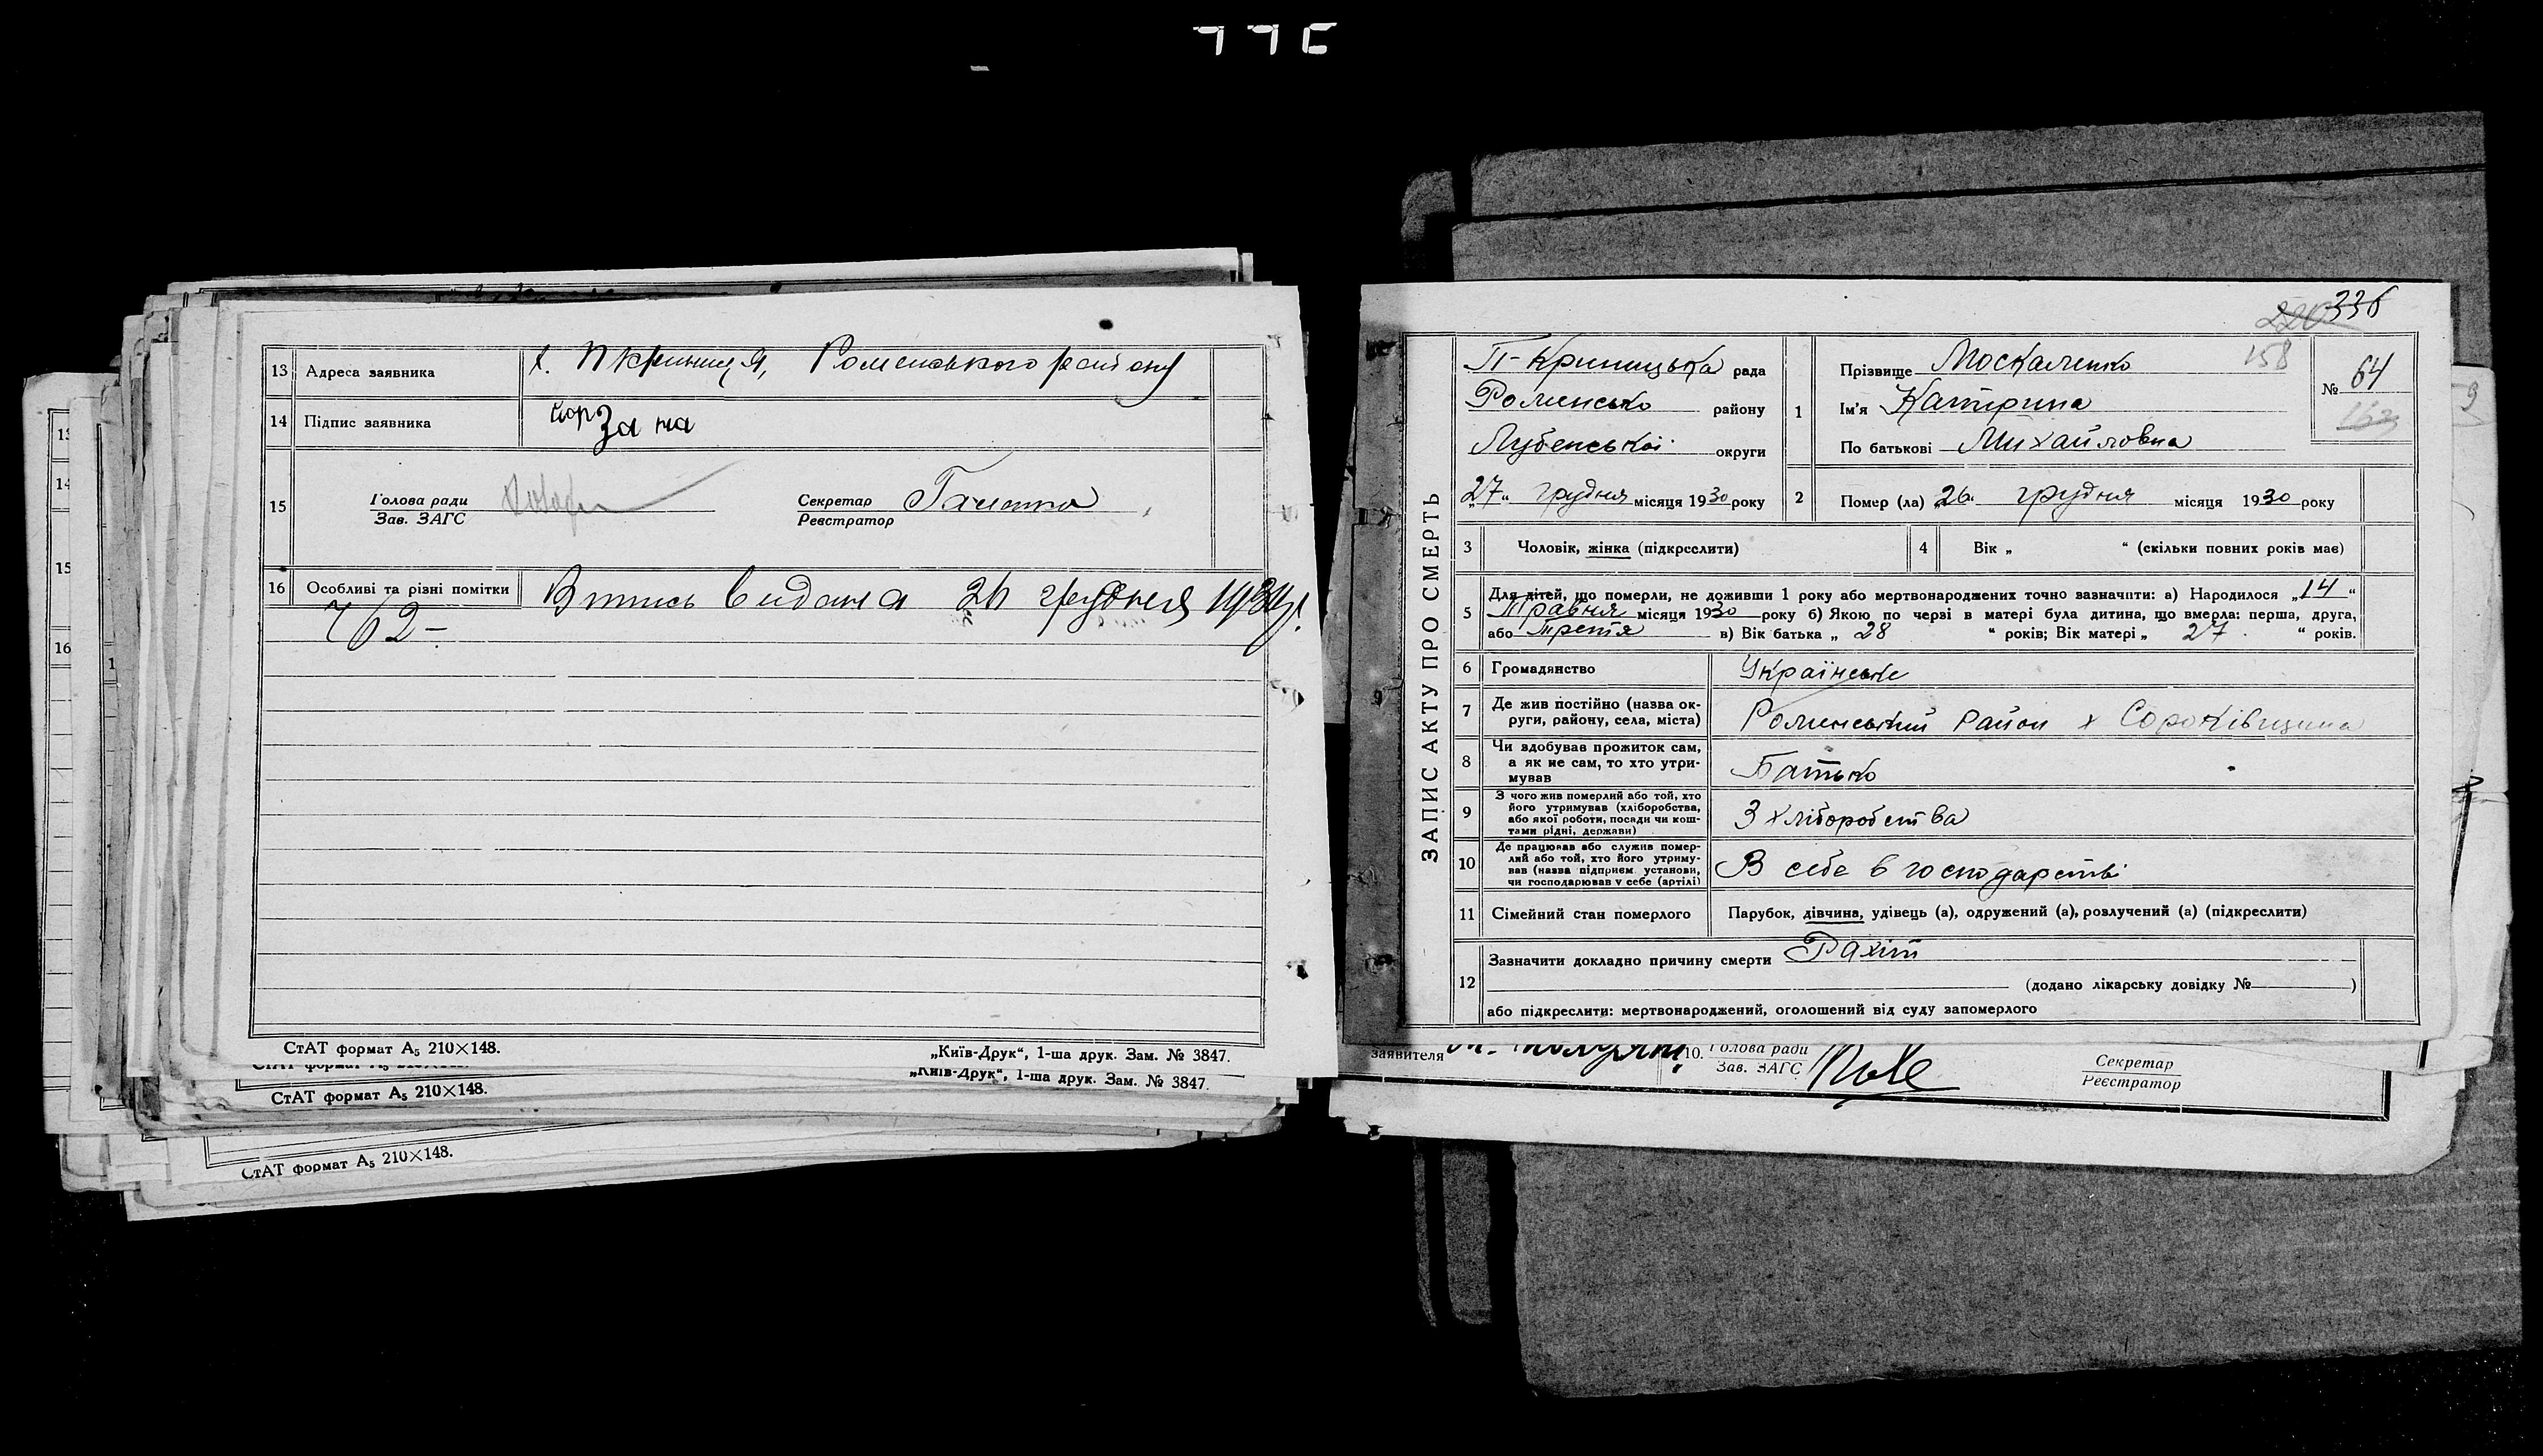 13 Адреса заявника х. Пкриниця, Роменського району
14 Підпис заявника
15 Голова ради
Зав. ЗАГС
Секретар
Реєстратор
16 Особливі та різні помітки Витись видана 26 грудня 1930 р.
762-
СтАТ формат А5 210×148.
„Київ-Друк“, 1-ша друк. Зам. № 3847.
„Київ-Друк“, 1-ша друк. Зам. № 3847.
СтАТ формат А5 210×148.
СтАТ формат А5 210×148.
336
ЗАПИС АКТУ ПРО СМЕРТЬ
П-Криницька рада
Роменсько району
Лубенської округи
„27“ грудня місяця 1930 року
1 Прізвище Москаленко 158
Ім'я Катирина
По батькові Михайловна
№ 64
2 Помер (ла) „26“ грудня місяця 1930 року
3 Чоловік, жінка (підкреслити)
4 Вік „ “ (скільки повних років має)
5 Для дітей, що померли, не доживши 1 року або мертвонароджених точно зазначити: а) Народилося „14“
Травня місяця 1930 року б) Якою по черві в матері була дитина, що вмерла: перша, друга,
або третя в) Вік батька „ 28 “ років; Вік матері „ 27 “ років.
6 Громадянство Українське
7 Де жив постійно (назва округи, району, села, міста) Роменський район х Сороківщина
8 Чи здобував прожиток сам, а як не сам, то хто утримував Батько
9 З чого жив померлий або той, хто його утримував (хліборобства, або якої роботи, посади чи коштами рідні, держави) З хліборобства
10 Де працював або служив померлий або той, хто його утримував (назва підприєм. установи, чи господарював у себе (артілі) В себе в господарстві
11 Сімейний стан померлого Парубок, дівчина, удівець (а), одружений (а), розлучений (а) (підкреслити)
12 Зазначити докладно причину смерти Рахіт
(додано лікарську довідку № )
або підкреслити: мертвонароджений, оголошений від суду запомерлого
заявителя
10. Голова ради
Зав. ЗАГС
Секретар
Реєстратор